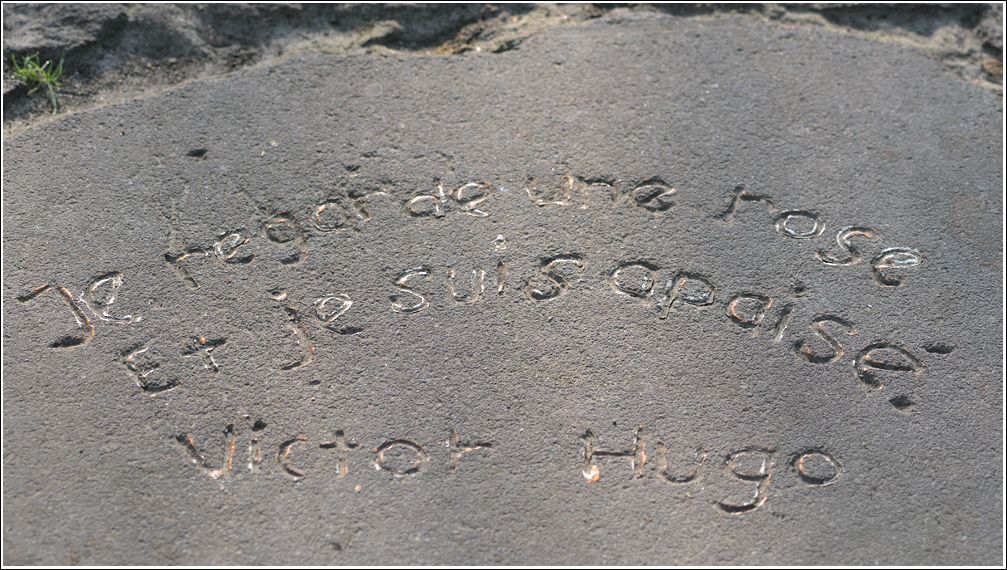 Je regarde une rose
Et je suis apaisé.
Victor Hugo